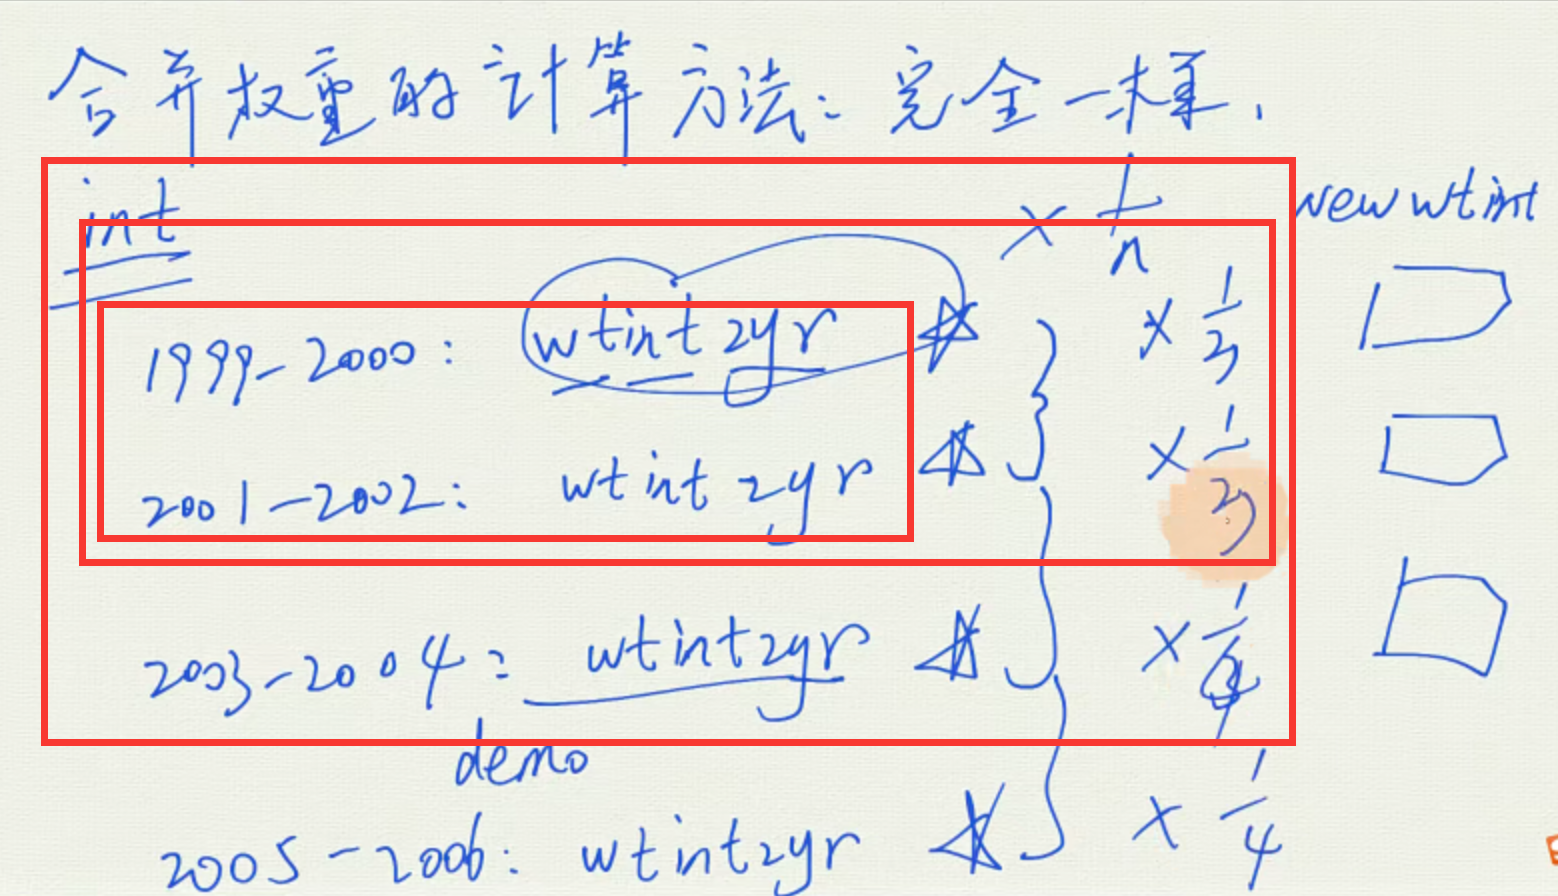 合并权重的计算方法：完全一样，
int × 1/n new wtint
1999-2000: wtint2yr × 1/3
2001-2002: wtint2yr × 1/3
2003-2004: wtint2yr
demo
2005-2006: wtint2yr × 1/4